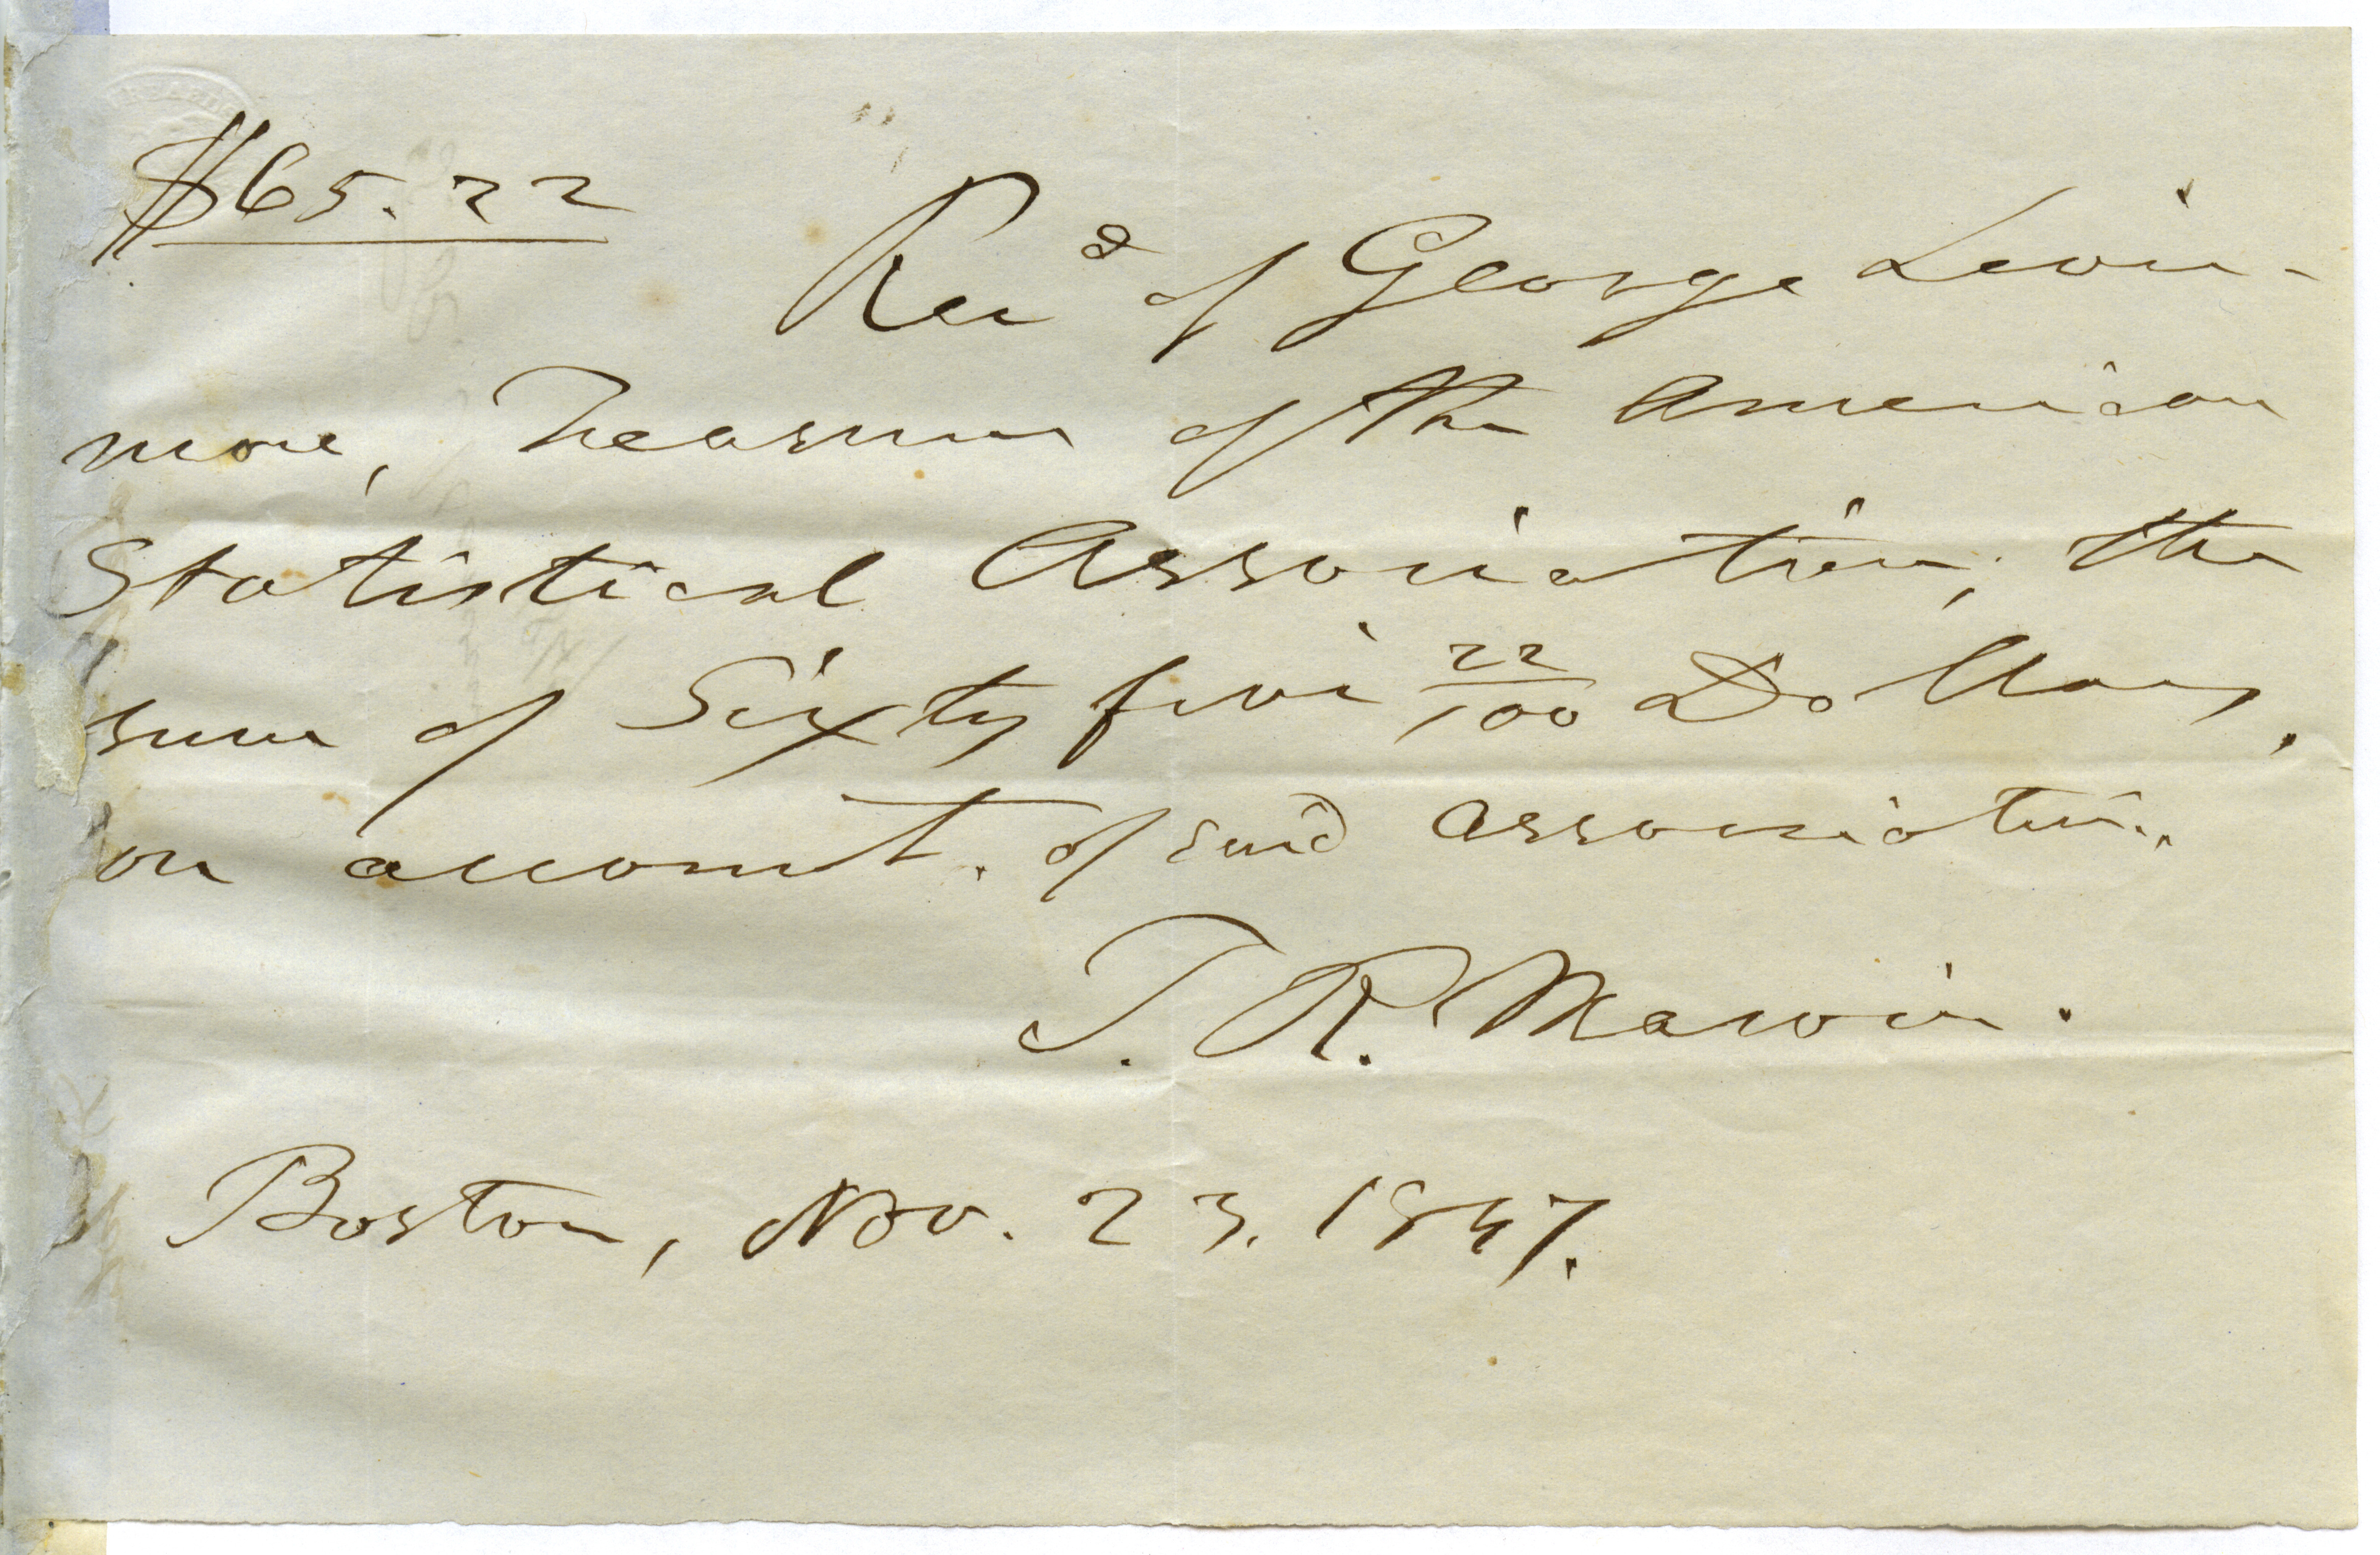 $65.22
Recd of George Livin-
more, Treasurer of the American
Statistical Association, the
sum of Sixty five 22/100 Dollars,
on account. of said Association.
T. R. Marvin.
Boston, Nov. 23. 1847.